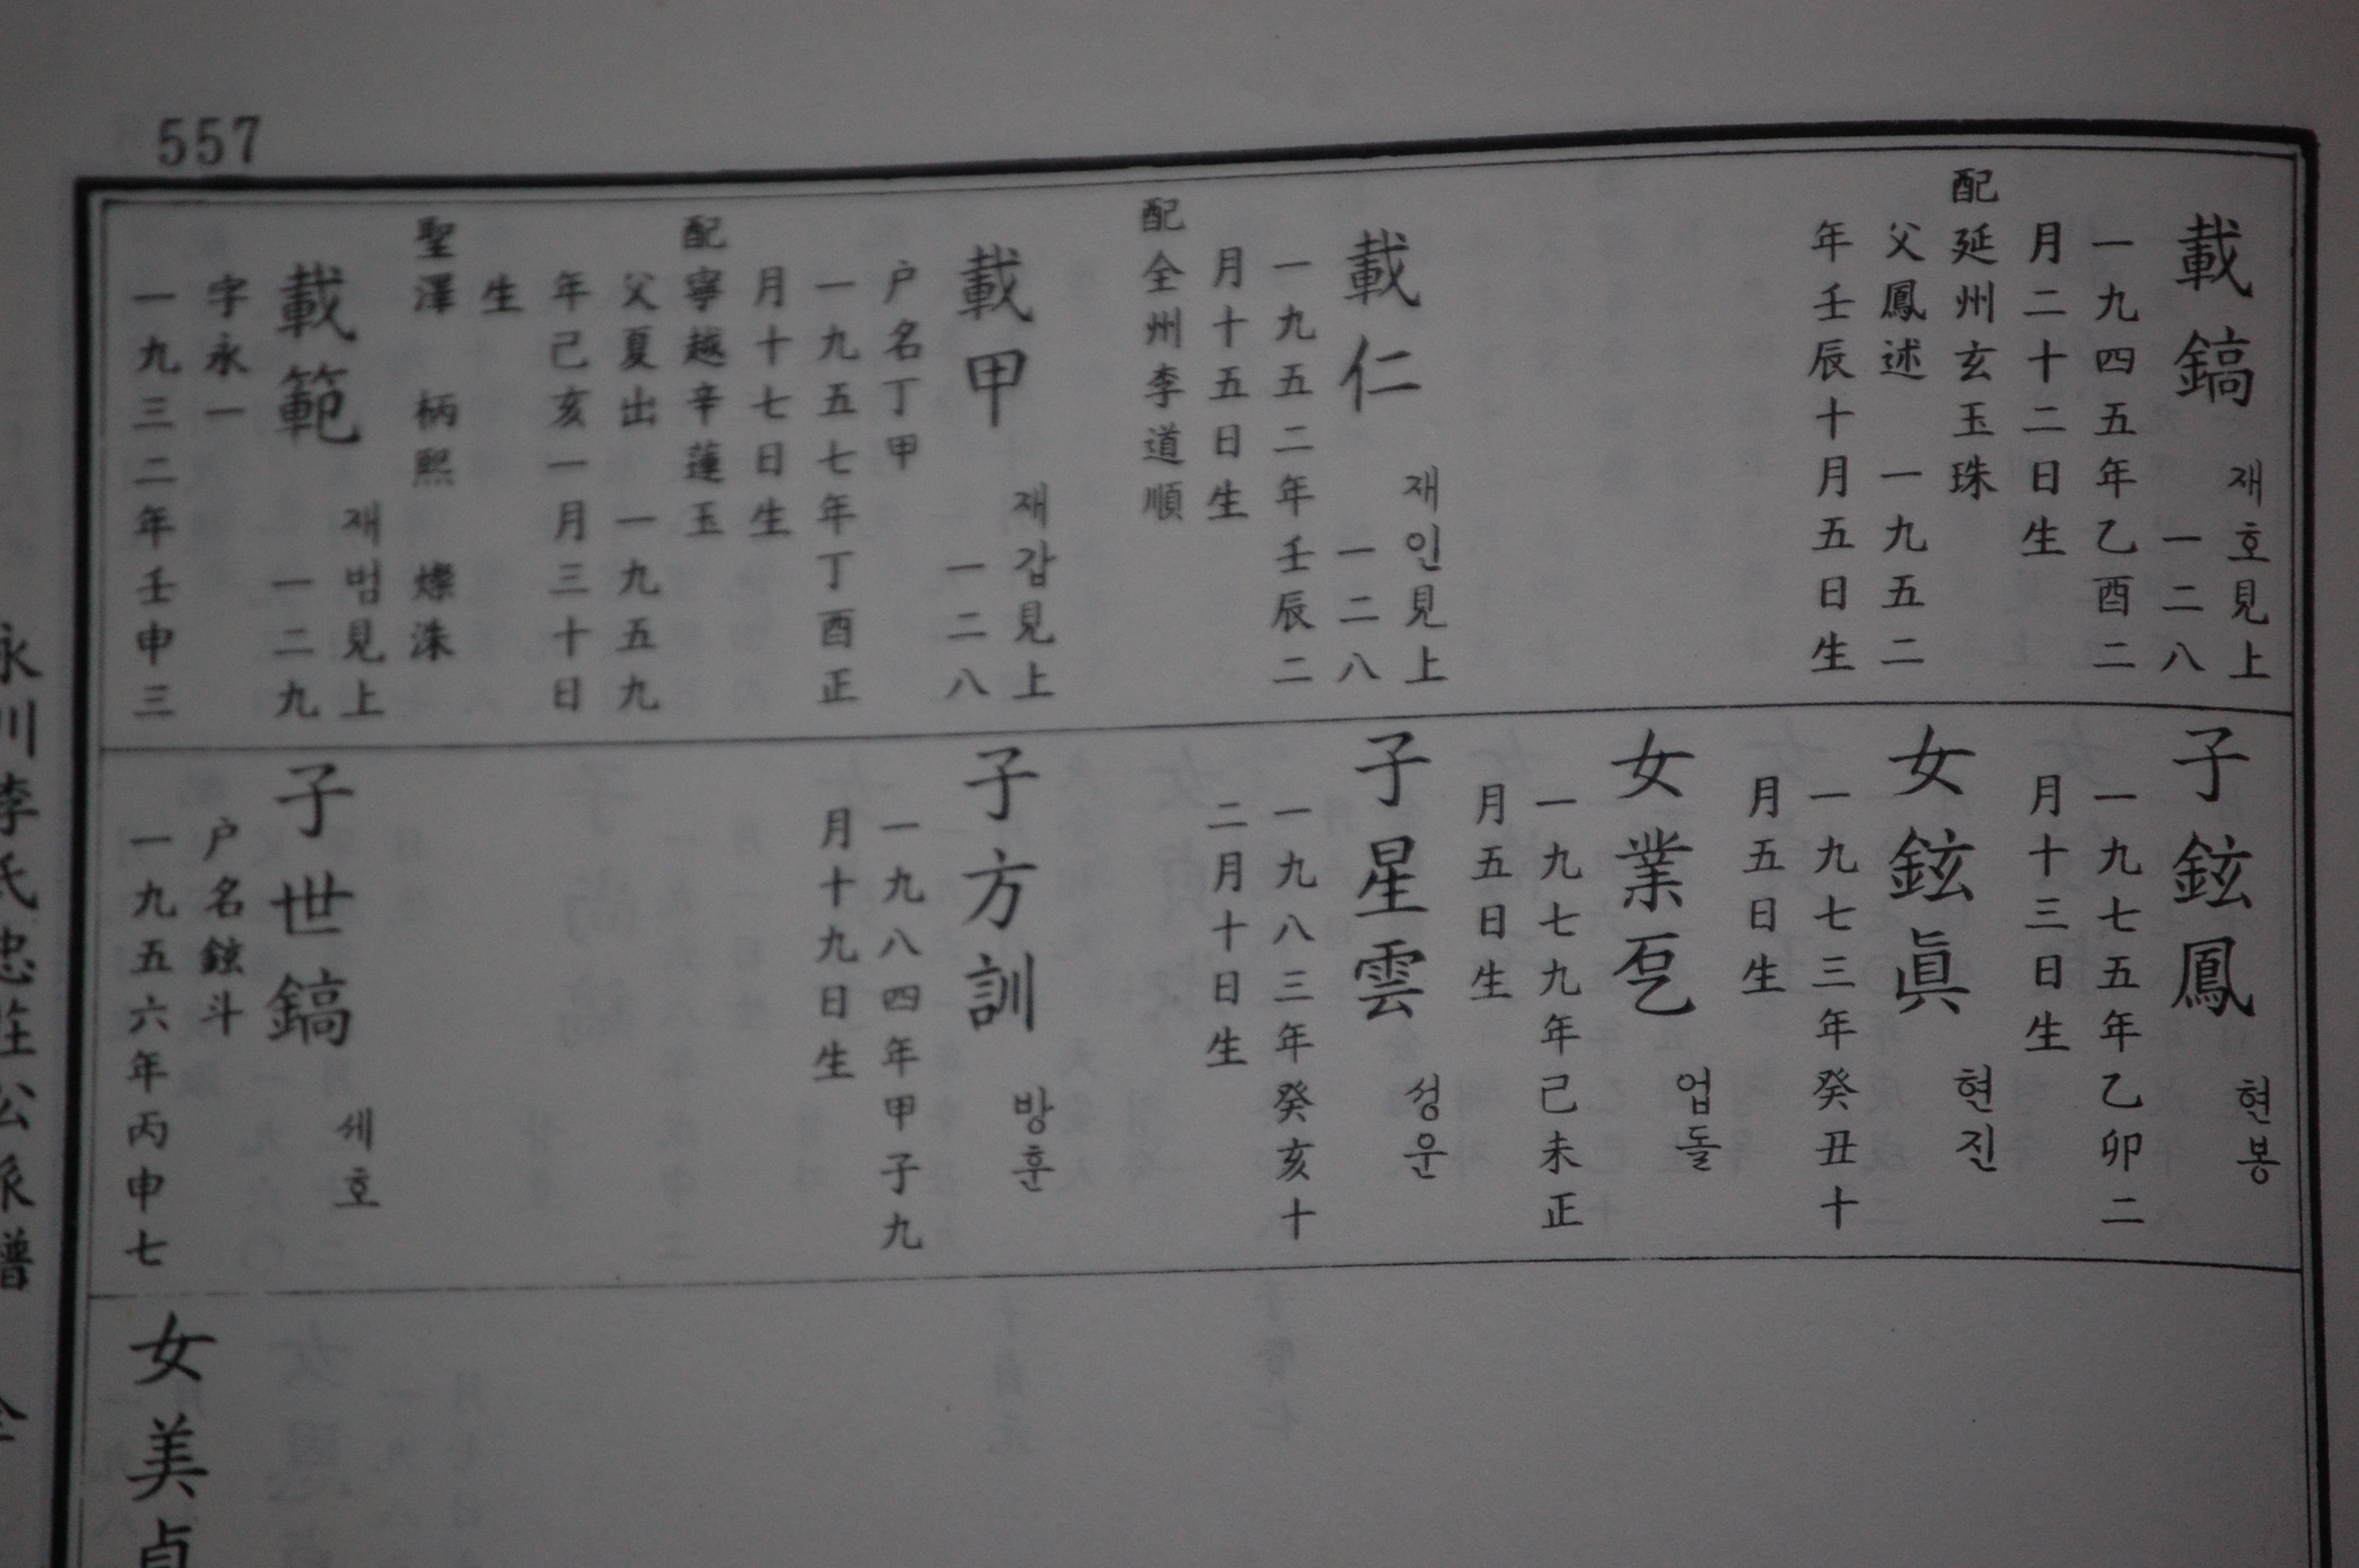 557
載鎬 재호見上
一二八
一九四五年乙酉二
月二十二日生
配延州玄玉珠
父鳳述 一九五二
年壬辰十月五日生
載仁 재인見上
一二八
一九五二年壬辰二
月十五日生
配全州李道順
載甲 재갑見上
一二八
户名丁甲
一九五七年丁酉正
月十七日生
配寧越辛蓮玉
父夏出 一九五九
年己亥一月三十日
生
聖澤 柄熙 燦洙
載範 재범見上
一二九
字永一
一九三二年壬申三
子鉉鳳 현봉
一九七五年乙卯二
月十三日生
女鉉眞 현진
一九七三年癸丑十
月五日生
女業乭 업돌
一九七九年己未正
月五日生
子星雲 성운
一九八三年癸亥十
二月十日生
子方訓 방훈
一九八四年甲子九
月十九日生
子世鎬 세호
户名鉉斗
一九五六年丙申七
女美貞
永川李氏忠莊公派譜